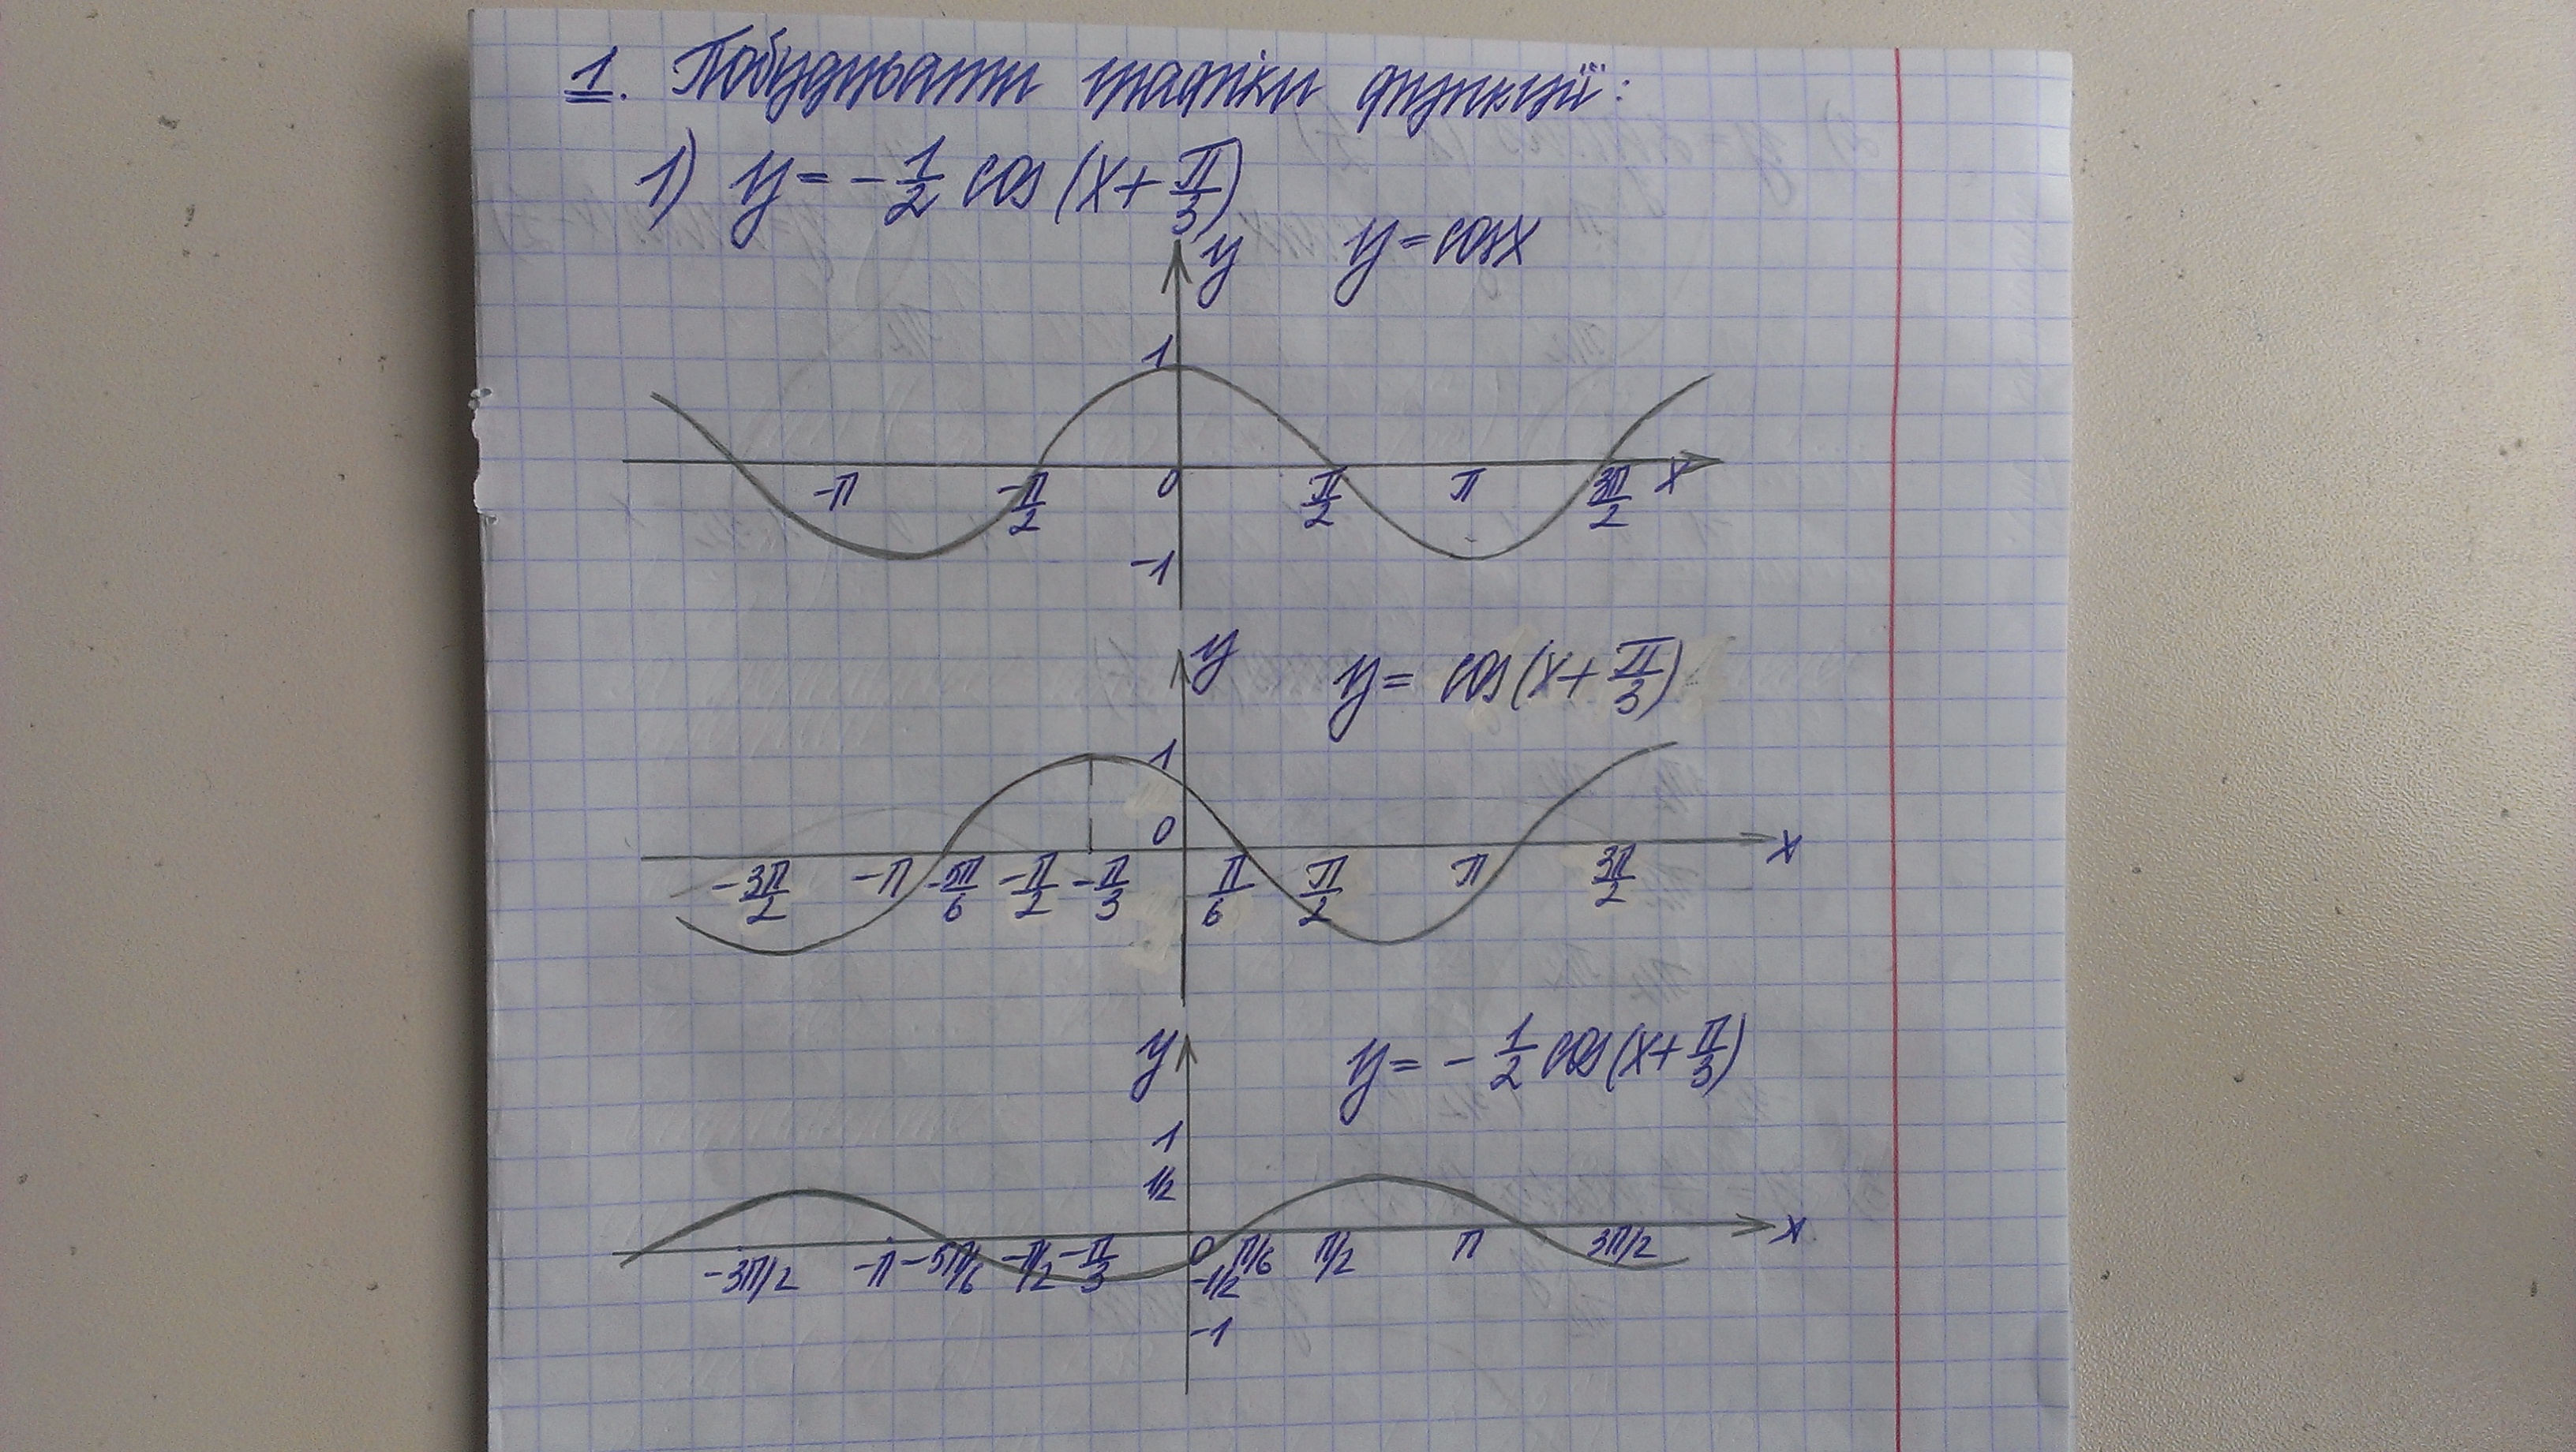 1. Побудувати графіки функцій:
1) y = -1/2 cos (x + π/3)
y    y = cos x
1
-π  -π/2  0  π/2  π  3π/2  x
-1
y    y = cos (x + π/3)
1
0
x
-3π/2  -π  -5π/6  -π/2  -π/3  π/6  π/2  π  3π/2
y    y = -1/2 cos (x + π/3)
1
1/2
-3π/2  -π  -5π/6  -π/2  -π/3  0  π/6  π/2  π  3π/2  x
-1/2
-1